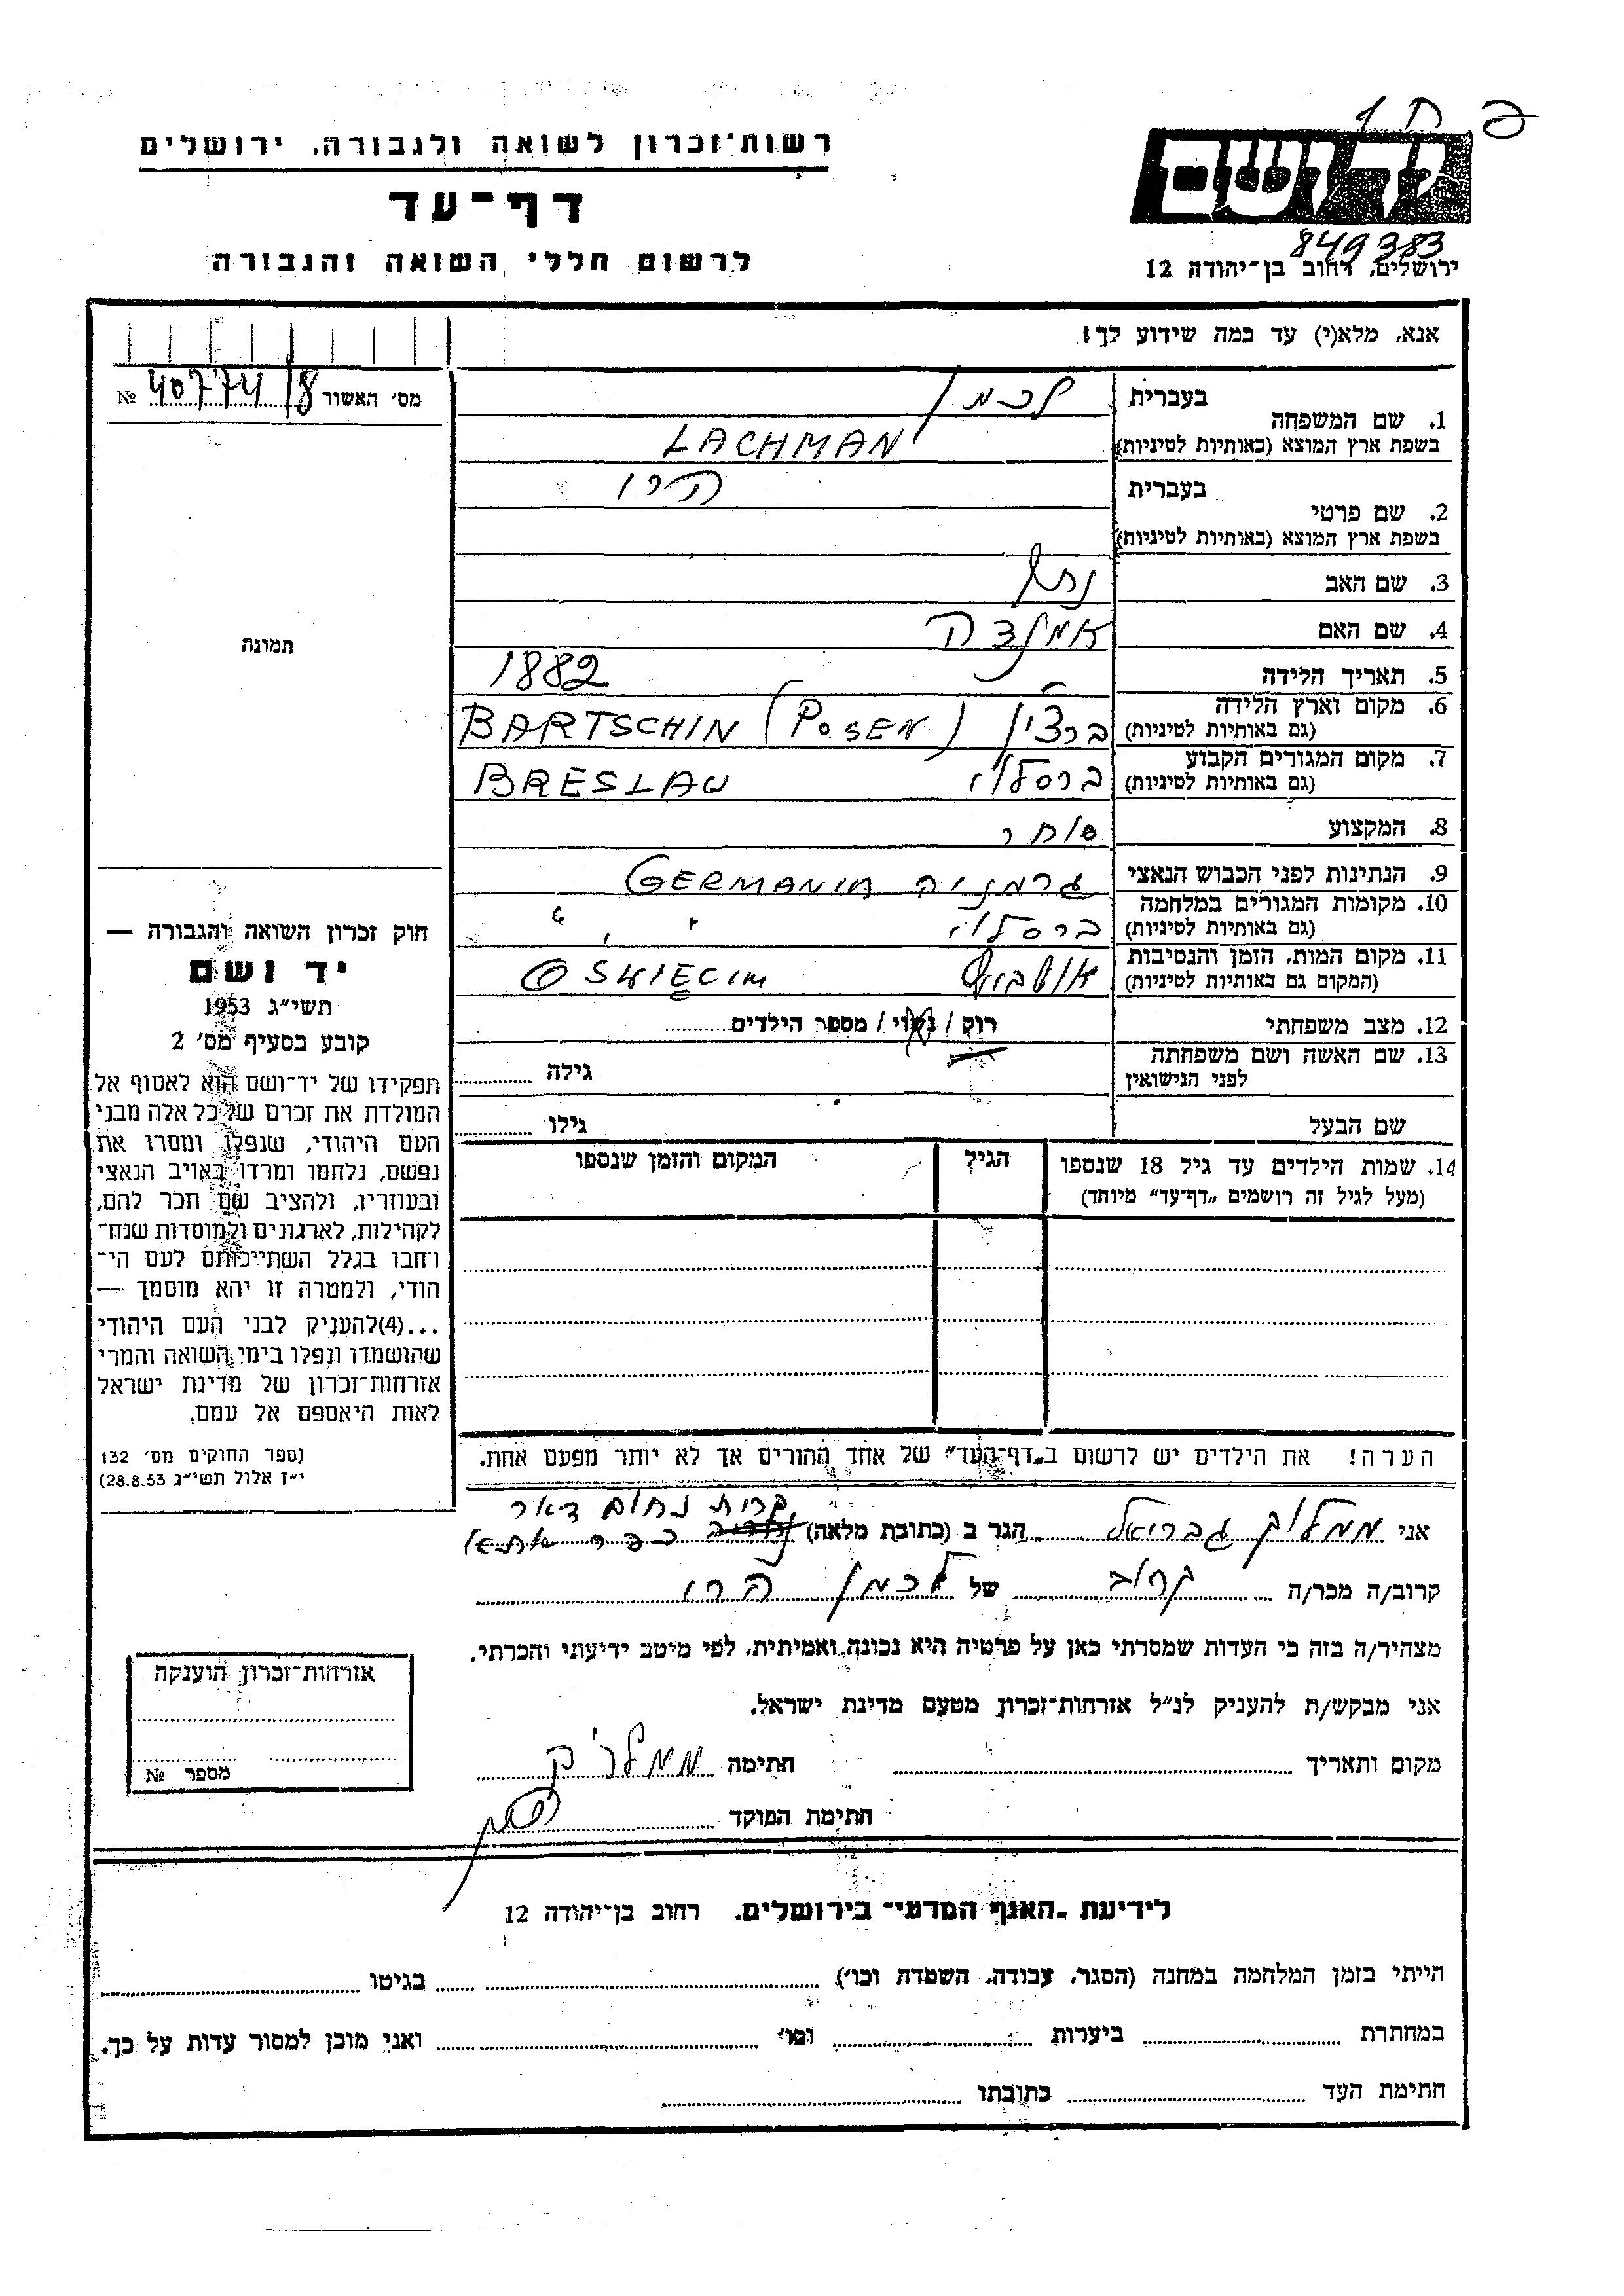 רשות־זכרון לשואה ולגבורה, ירושלים
דף־עד
לרשום חללי השואה והגבורה
יד ושם
849383
ירושלים, רחוב בן־יהודה 12
אנא, מלא(י) עד כמה שידוע לך!
מס' האשור 40774/8 №
תמונה
1. שם המשפחה
בעברית לכמן
בשפת ארץ המוצא (באותיות לטיניות) LACHMAN
2. שם פרטי
בעברית הרי
בשפת ארץ המוצא (באותיות לטיניות)
3. שם האב נתן
4. שם האם
5. תאריך הלידה 1882
6. מקום וארץ הלידה
(גם באותיות לטיניות) ברצ'ין BARTSCHIN (POSEN)
7. מקום המגורים הקבוע
(גם באותיות לטיניות) ברסלוי BRESLAU
8. המקצוע סוחר
9. הנתינות לפני הכבוש הנאצי גרמניה GERMANIA
10. מקומות המגורים במלחמה
(גם באותיות לטיניות) ברסלוי " "
11. מקום המות, הזמן והנסיבות
(המקום גם באותיות לטיניות) אושביץ OSWIECIM
12. מצב משפחתי רוק / נשוי / מספר הילדים
13. שם האשה ושם משפחתה
לפני הנישואין גילה
שם הבעל גילו
14. שמות הילדים עד גיל 18 שנספו הגיל המקום והזמן שנספו
(מעל לגיל זה רושמים „דף־עד" מיוחד)
חוק זכרון השואה והגבורה —
יד ושם
תשי"ג 1953
קובע בסעיף מס' 2
תפקידו של יד־ושם הוא לאסוף אל
המולדת את זכרם של כל אלה מבני
העם היהודי, שנפלו ומסרו את
נפשם, נלחמו ומרדו באויב הנאצי
ובעוזריו, ולהציב שם וזכר להם,
לקהילות, לארגונים ולמוסדות שנח־
רחבו בגלל השתייכותם לעם הי־
הודי, ולמטרה זו יהא מוסמך —
...(4)להעניק לבני העם היהודי
שהושמדו ונפלו בימי השואה והמרי
אזרחות־זכרון של מדינת ישראל
לאות היאספם אל עמם.
(ספר החוקים מס' 132
י"ז אלול תשי"ג 28.8.53)
הערה! את הילדים יש לרשום ב„דף־העד" של אחד ההורים אך לא יותר מפעם אחת.
קרית נחום דאר
אני ממלוק גבריאל הגר ב (כתובת מלאה) כפר אתא
קרוב/ה מכר/ה קרוב של לכמן הרי
מצהיר/ה בזה כי העדות שמסרתי כאן על פרטיה היא נכונה ואמיתית, לפי מיטב ידיעתי והכרתי.
אני מבקש/ת להעניק לנ"ל אזרחות־זכרון מטעם מדינת ישראל.
מקום ותאריך חתימה
חתימת הפוקד
אזרחות־זכרון הוענקה
מספר №
לידיעת „האגף המדעי" בירושלים, רחוב בן־יהודה 12
הייתי בזמן המלחמה במחנה (הסגר, עבודה, השמדה וכו') בגיטו
במחתרת ביערות וכו' ואני מוכן למסור עדות על כך.
חתימת העד כתובתו